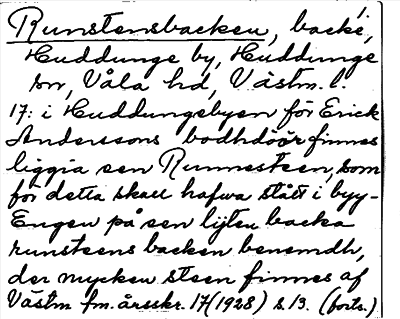 Runstensbacken, backe i,
Huddunge by, Huddunge
sn, Våla hd, Västm. l.
17: i Huddungebyen för Erick
Anderssons bodhdöör finnes
liggia een Runnesteen, som
för detta skall hafwa stått i byy-
Engen på een lijten backa
runsteens backen benemdh,
der mycken steen finnes af
Västm fm. årsskr. 17 (1928) s. 13. (forts.)